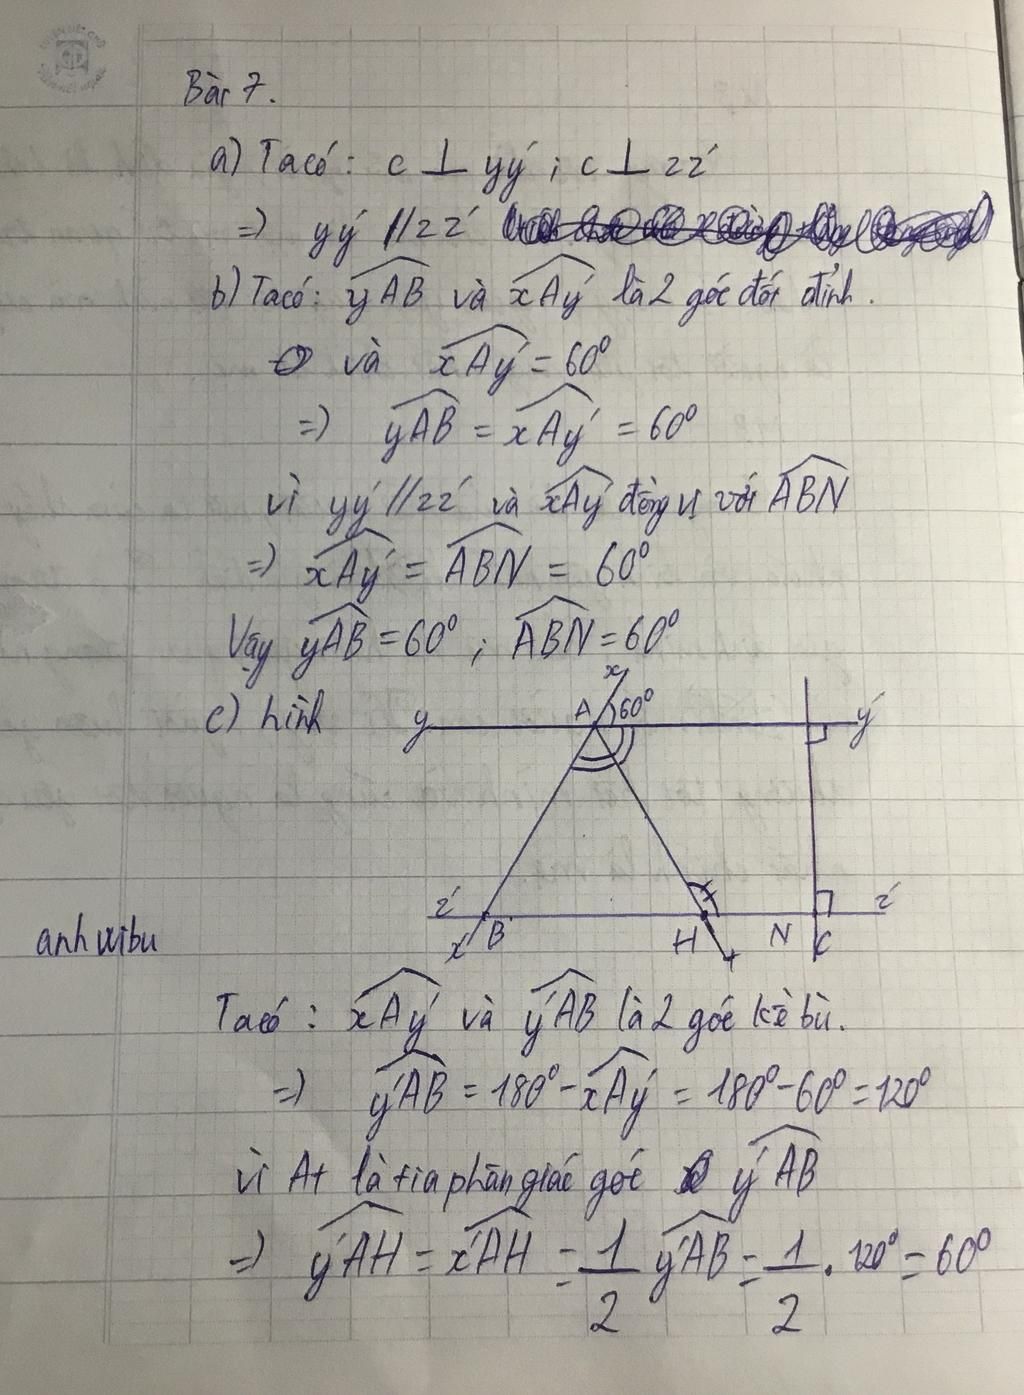 Bài 7.
a) Ta có: c ⊥ yy' ; c ⊥ zz'
=> yy' // zz'
b) Ta có: yAB và xAy' là 2 góc đối đỉnh.
và xAy' = 60°
=> yAB = xAy' = 60°
vì yy' // zz' và xAy' đồng vị với ABN
=> xAy' = ABN = 60°
Vậy yAB = 60° ; ABN = 60°
c) hình
x
y A 60° y'
z' B H N C z'
x' t
anh wibu
Ta có: xAy' và y'AB là 2 góc kề bù.
=> y'AB = 180° - xAy' = 180° - 60° = 120°
vì At là tia phân giác góc y'AB
=> y'AH = x'AH = 1/2 y'AB = 1/2 . 120° = 60°